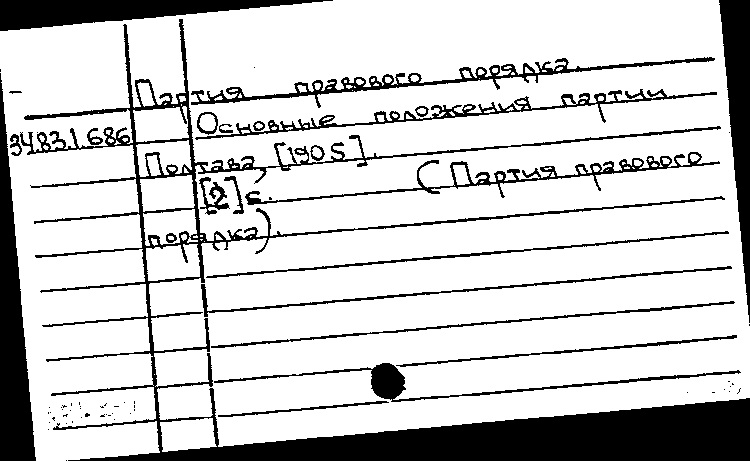 Партия правового порядка.
34.83.1.686 Основные положения партии.
Полтава, [1905].
[2] с. (Партия правового
порядка).